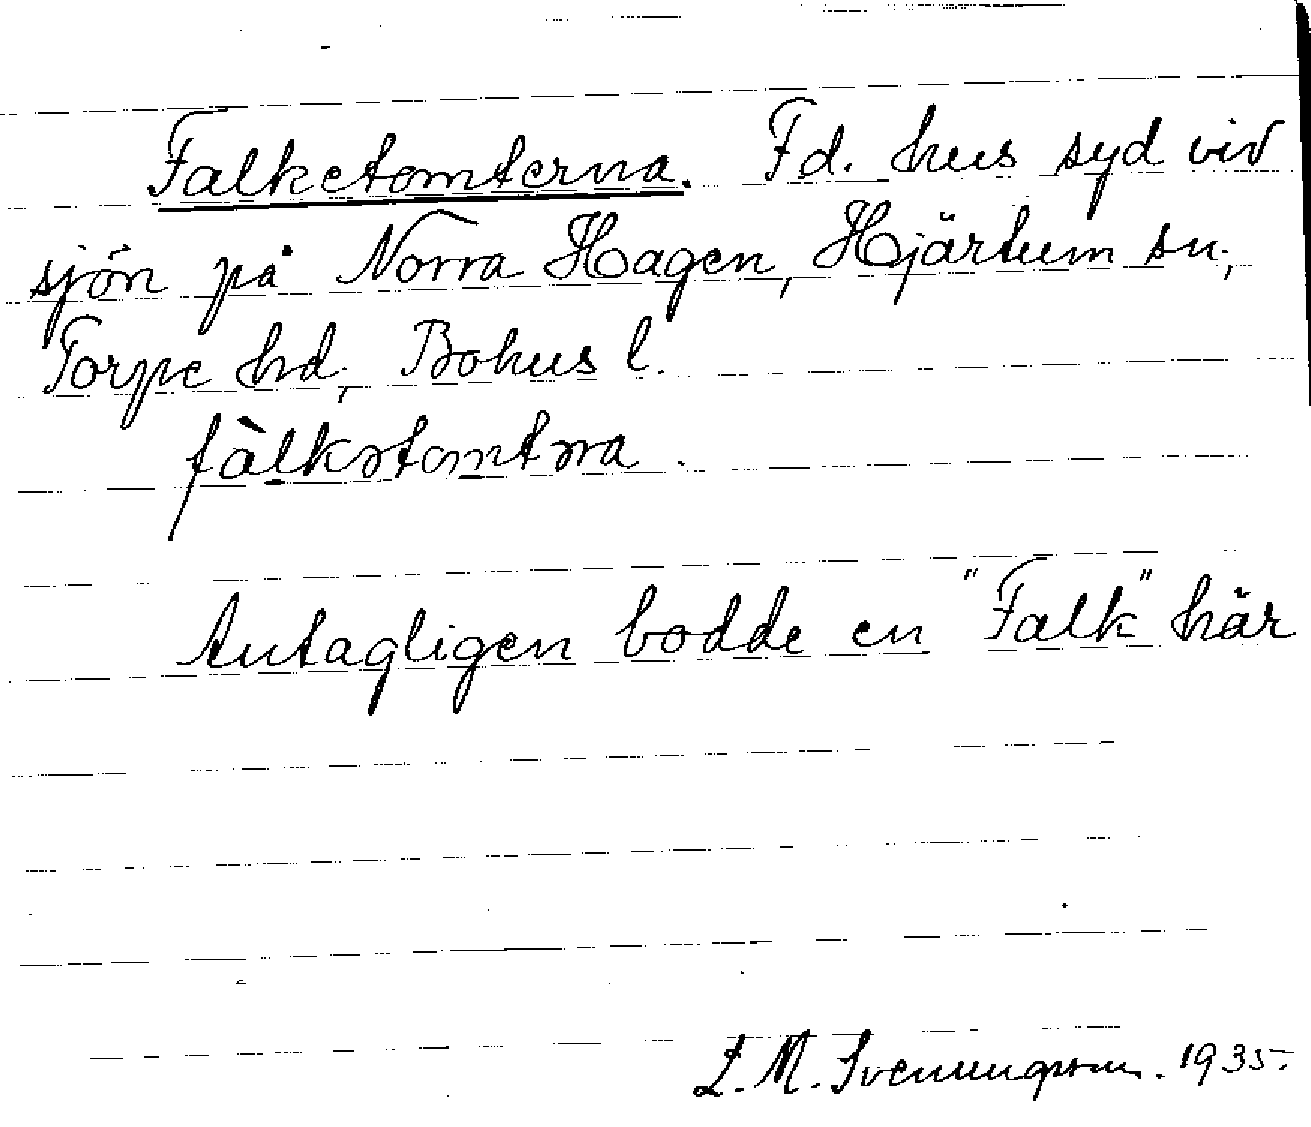 Falketomterna. Fd. hus syd vid
sjön på Norra Hagen, Hjärtum sn.,
Torpe hd., Bohus l.
fàlkətomtəɳa.
Antagligen bodde en "Falk" här
L. M. Svenungsson. 1935.